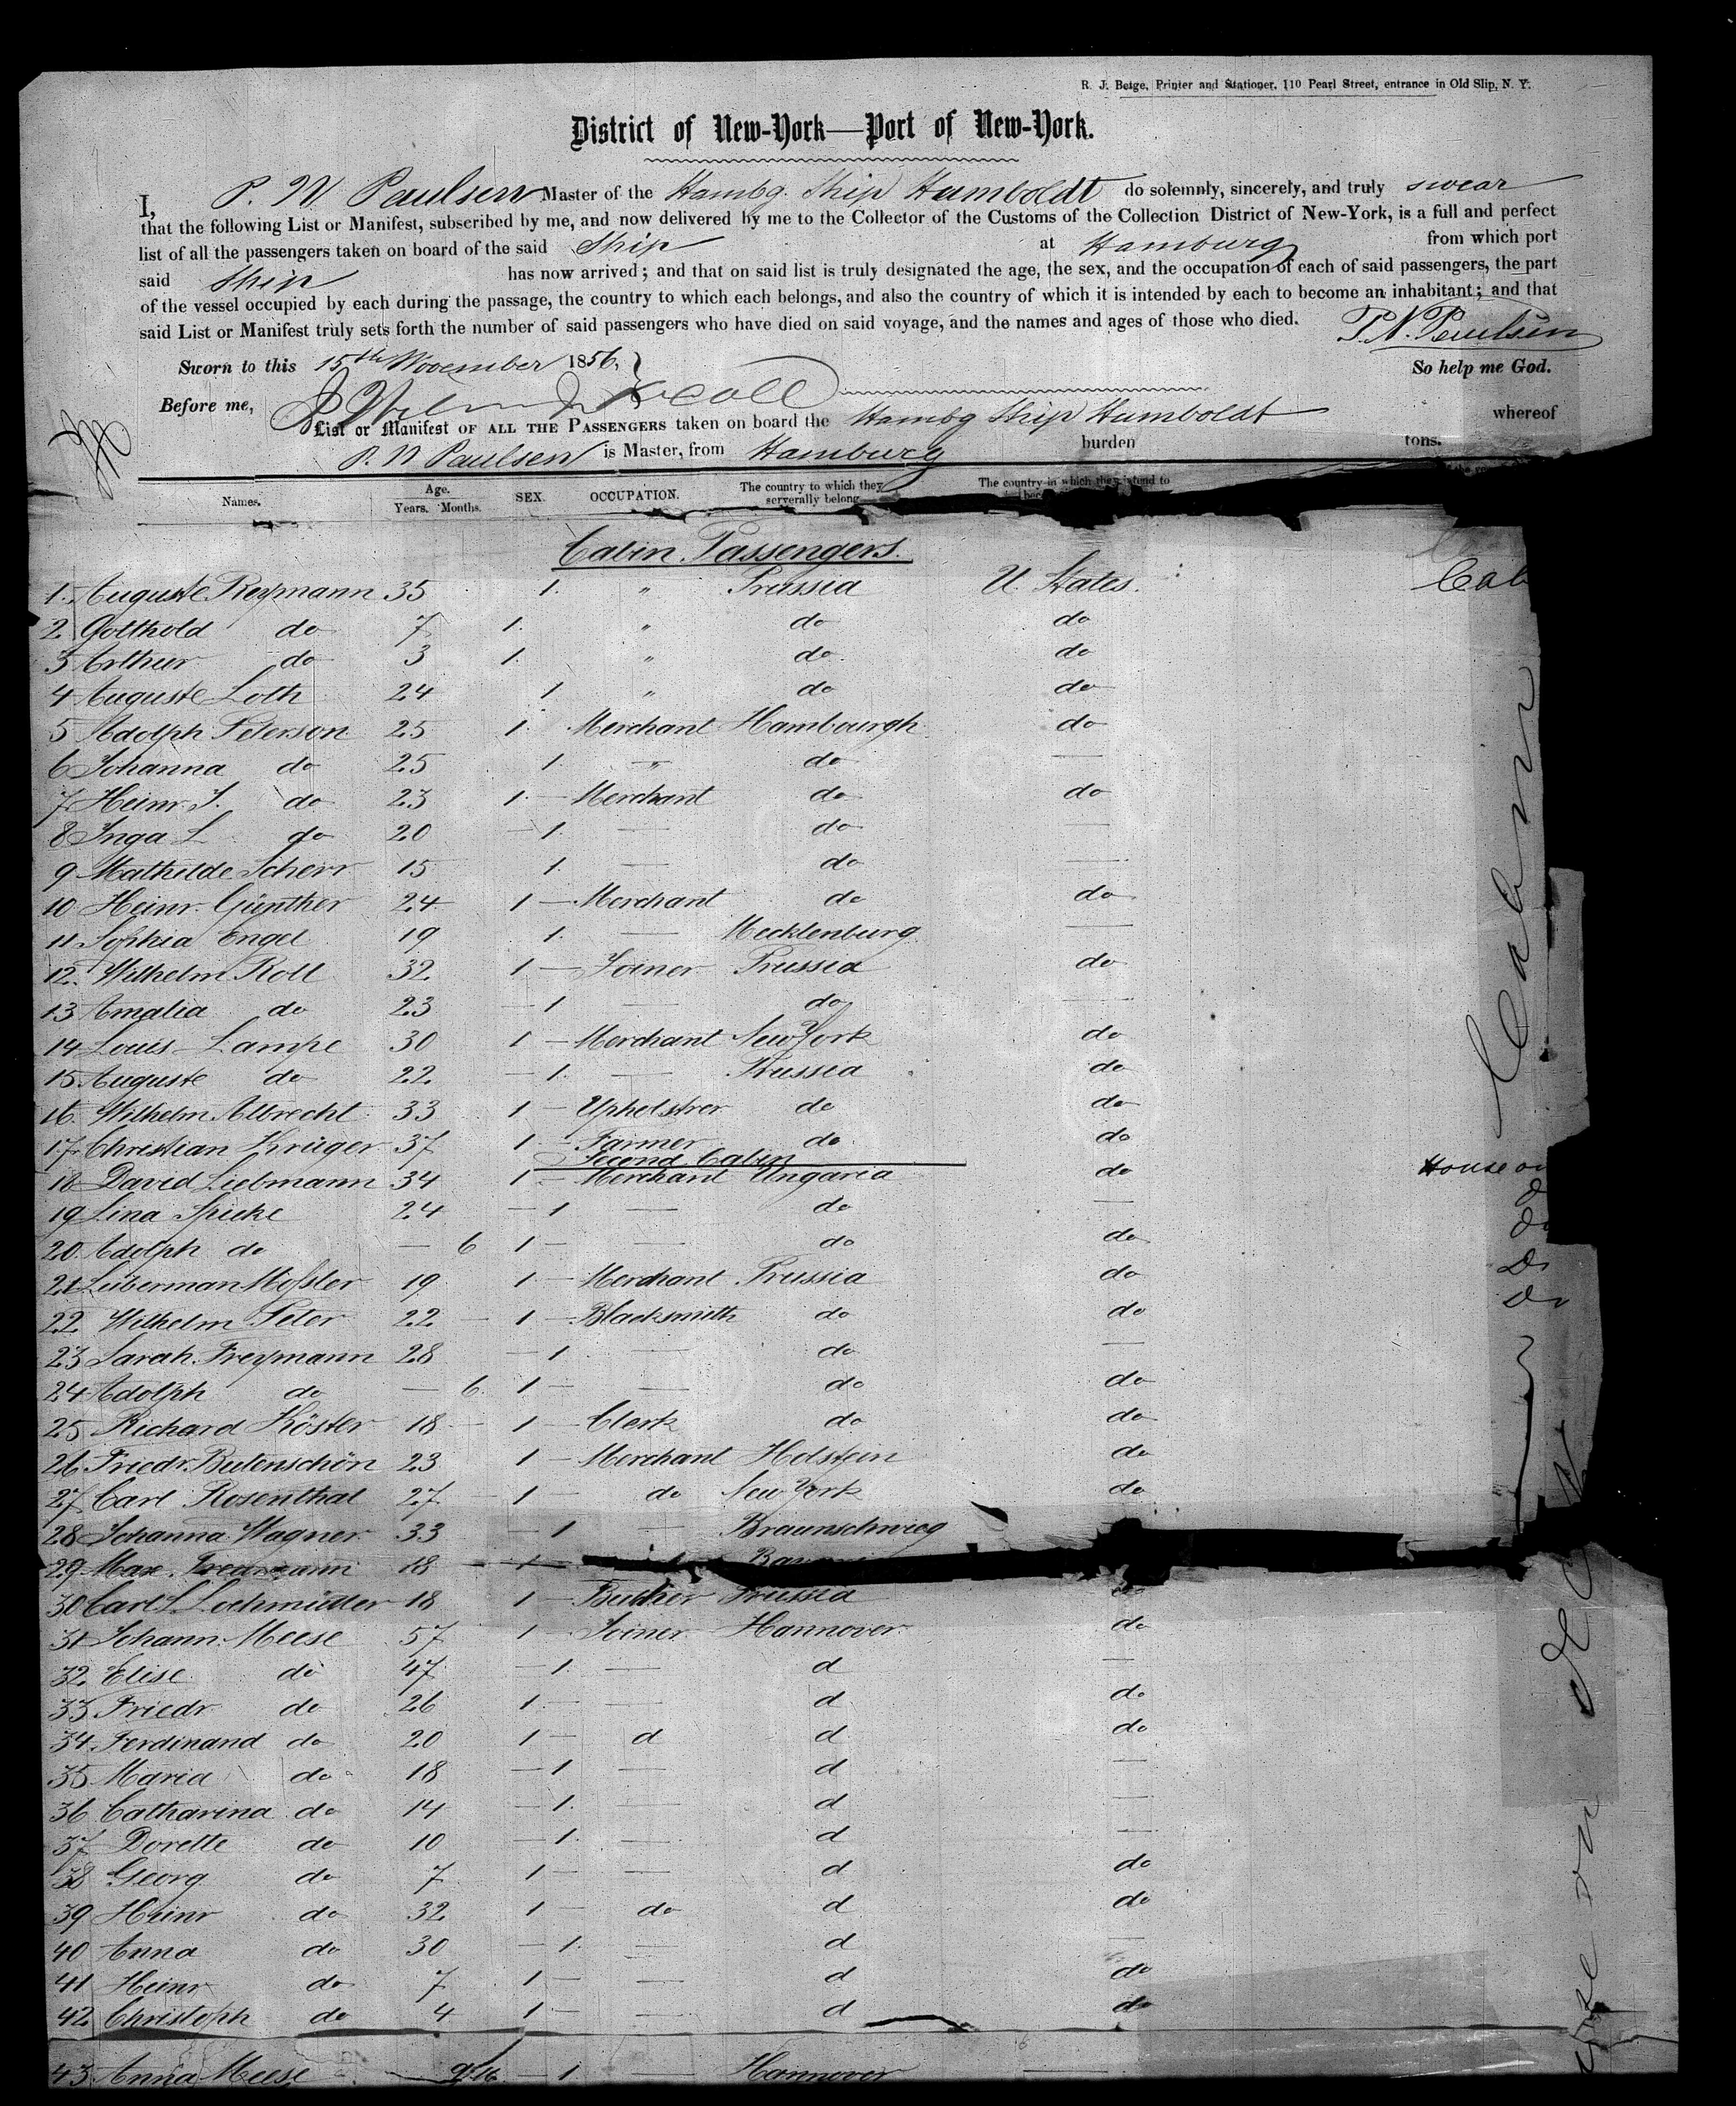 R. J. Beige, Printer and Stationer, 110 Pearl Street, entrance in Old Slip, N. Y.
District of New-York—Port of New-York.
I, P. N. Paulsen Master of the Hambg. Ship Humboldt do solemnly, sincerely, and truly swear
that the following List or Manifest, subscribed by me, and now delivered by me to the Collector of the Customs of the Collection District of New-York, is a full and perfect
list of all the passengers taken on board of the said Ship at Hamburg from which port
said Ship has now arrived; and that on said list is truly designated the age, the sex, and the occupation of each of said passengers, the part
of the vessel occupied by each during the passage, the country to which each belongs, and also the country of which it is intended by each to become an inhabitant; and that
said List or Manifest truly sets forth the number of said passengers who have died on said voyage, and the names and ages of those who died. P. N. Paulsen
Sworn to this 15th November 1856, So help me God.
Before me,
List or Manifest OF ALL THE PASSENGERS taken on board the Hambg Ship Humboldt whereof
P. N Paulsen is Master, from Hamburg burden tons.
Names. Age. Years. Months. SEX. OCCUPATION. The country to which they serverally belong. The country in which they intend to
Cabin Passengers.
1. Auguste Reymann 35 1. " Prussia U. States. Cab
2 Gotthold do 7 1. " do do
3 Arthur do 3 1. " do. do
4 Auguste Loth 24 1 " do do
5 Adolph Peterson 25 1. Merchant Hambourgh do
6 Johanna do 25 1. " do —
7 Heinr. J. do 23 1. — Merchant do do
8 Inga L do 20 — 1. — do —
9 Mathilde Scherr 15 1. — do —
10 Heinr. Günther 24 1 — Merchant do do
11 Sophia Engel 19 1. — Mecklenburg —
12. Wilhelm Roll 32 1 — Joiner Prussia do
13 Amalia do 23 — 1 — do —
14 Louis Lampe 30 1 — Merchant New York do
15 Auguste do 22 — 1. — Prussia do
16. Wilhelm Albrecht 33 1 — Upholstrer do do
17. Christian Krüger 37 1 — Farmer do do
Second Cabin
18 David Liebmann 34 1 — Merchant Ungaria do House on
19 Lina Spieke 24 — 1 — do —
20. Adolph do — 6 1 — — do do
21 Lieberman Mossler 19 1. — Merchant Prussia do Do
22 Wilhelm Peter 22 — 1 — Blacksmith do do Do
23 Sarah Freymann 28 — 1 — do —
24 Adolph do — 6. 1 — — do do
25 Richard Köster 18 — 1 — Clerk do do
26 Friedr. Butenschön 23 1 — Merchant Holstein do
27 Carl Rosenthal 27 — 1 — do New York do
28 Johanna Wagner 33 — 1 — Braunschwieg
29 Max 18 — 1 —
30 Carl L Lochmüller 18 1 — Butcher Prussia do
31 Johann Meese 57 1 Joiner Hannover. do
32 Elise do 47 — 1. — d —
33 Friedr. do 26 1. — — d do
34 Ferdinand do 20 1 — d d do
35 Maria do 18 — 1 — d —
36 Catharina do 14 — 1. — d —
37 Dorette do 10 — 1. — d —
38 Georg do 7 1 — — d do
39 Heinr do 32 1 — do d do
40 Anna do 30 — 1. — d —
41 Heinr do 7 1 — — d do
42 Christoph do 4 1 — — d do
43 Anna Meese — 1. — Hannover —
Cabin